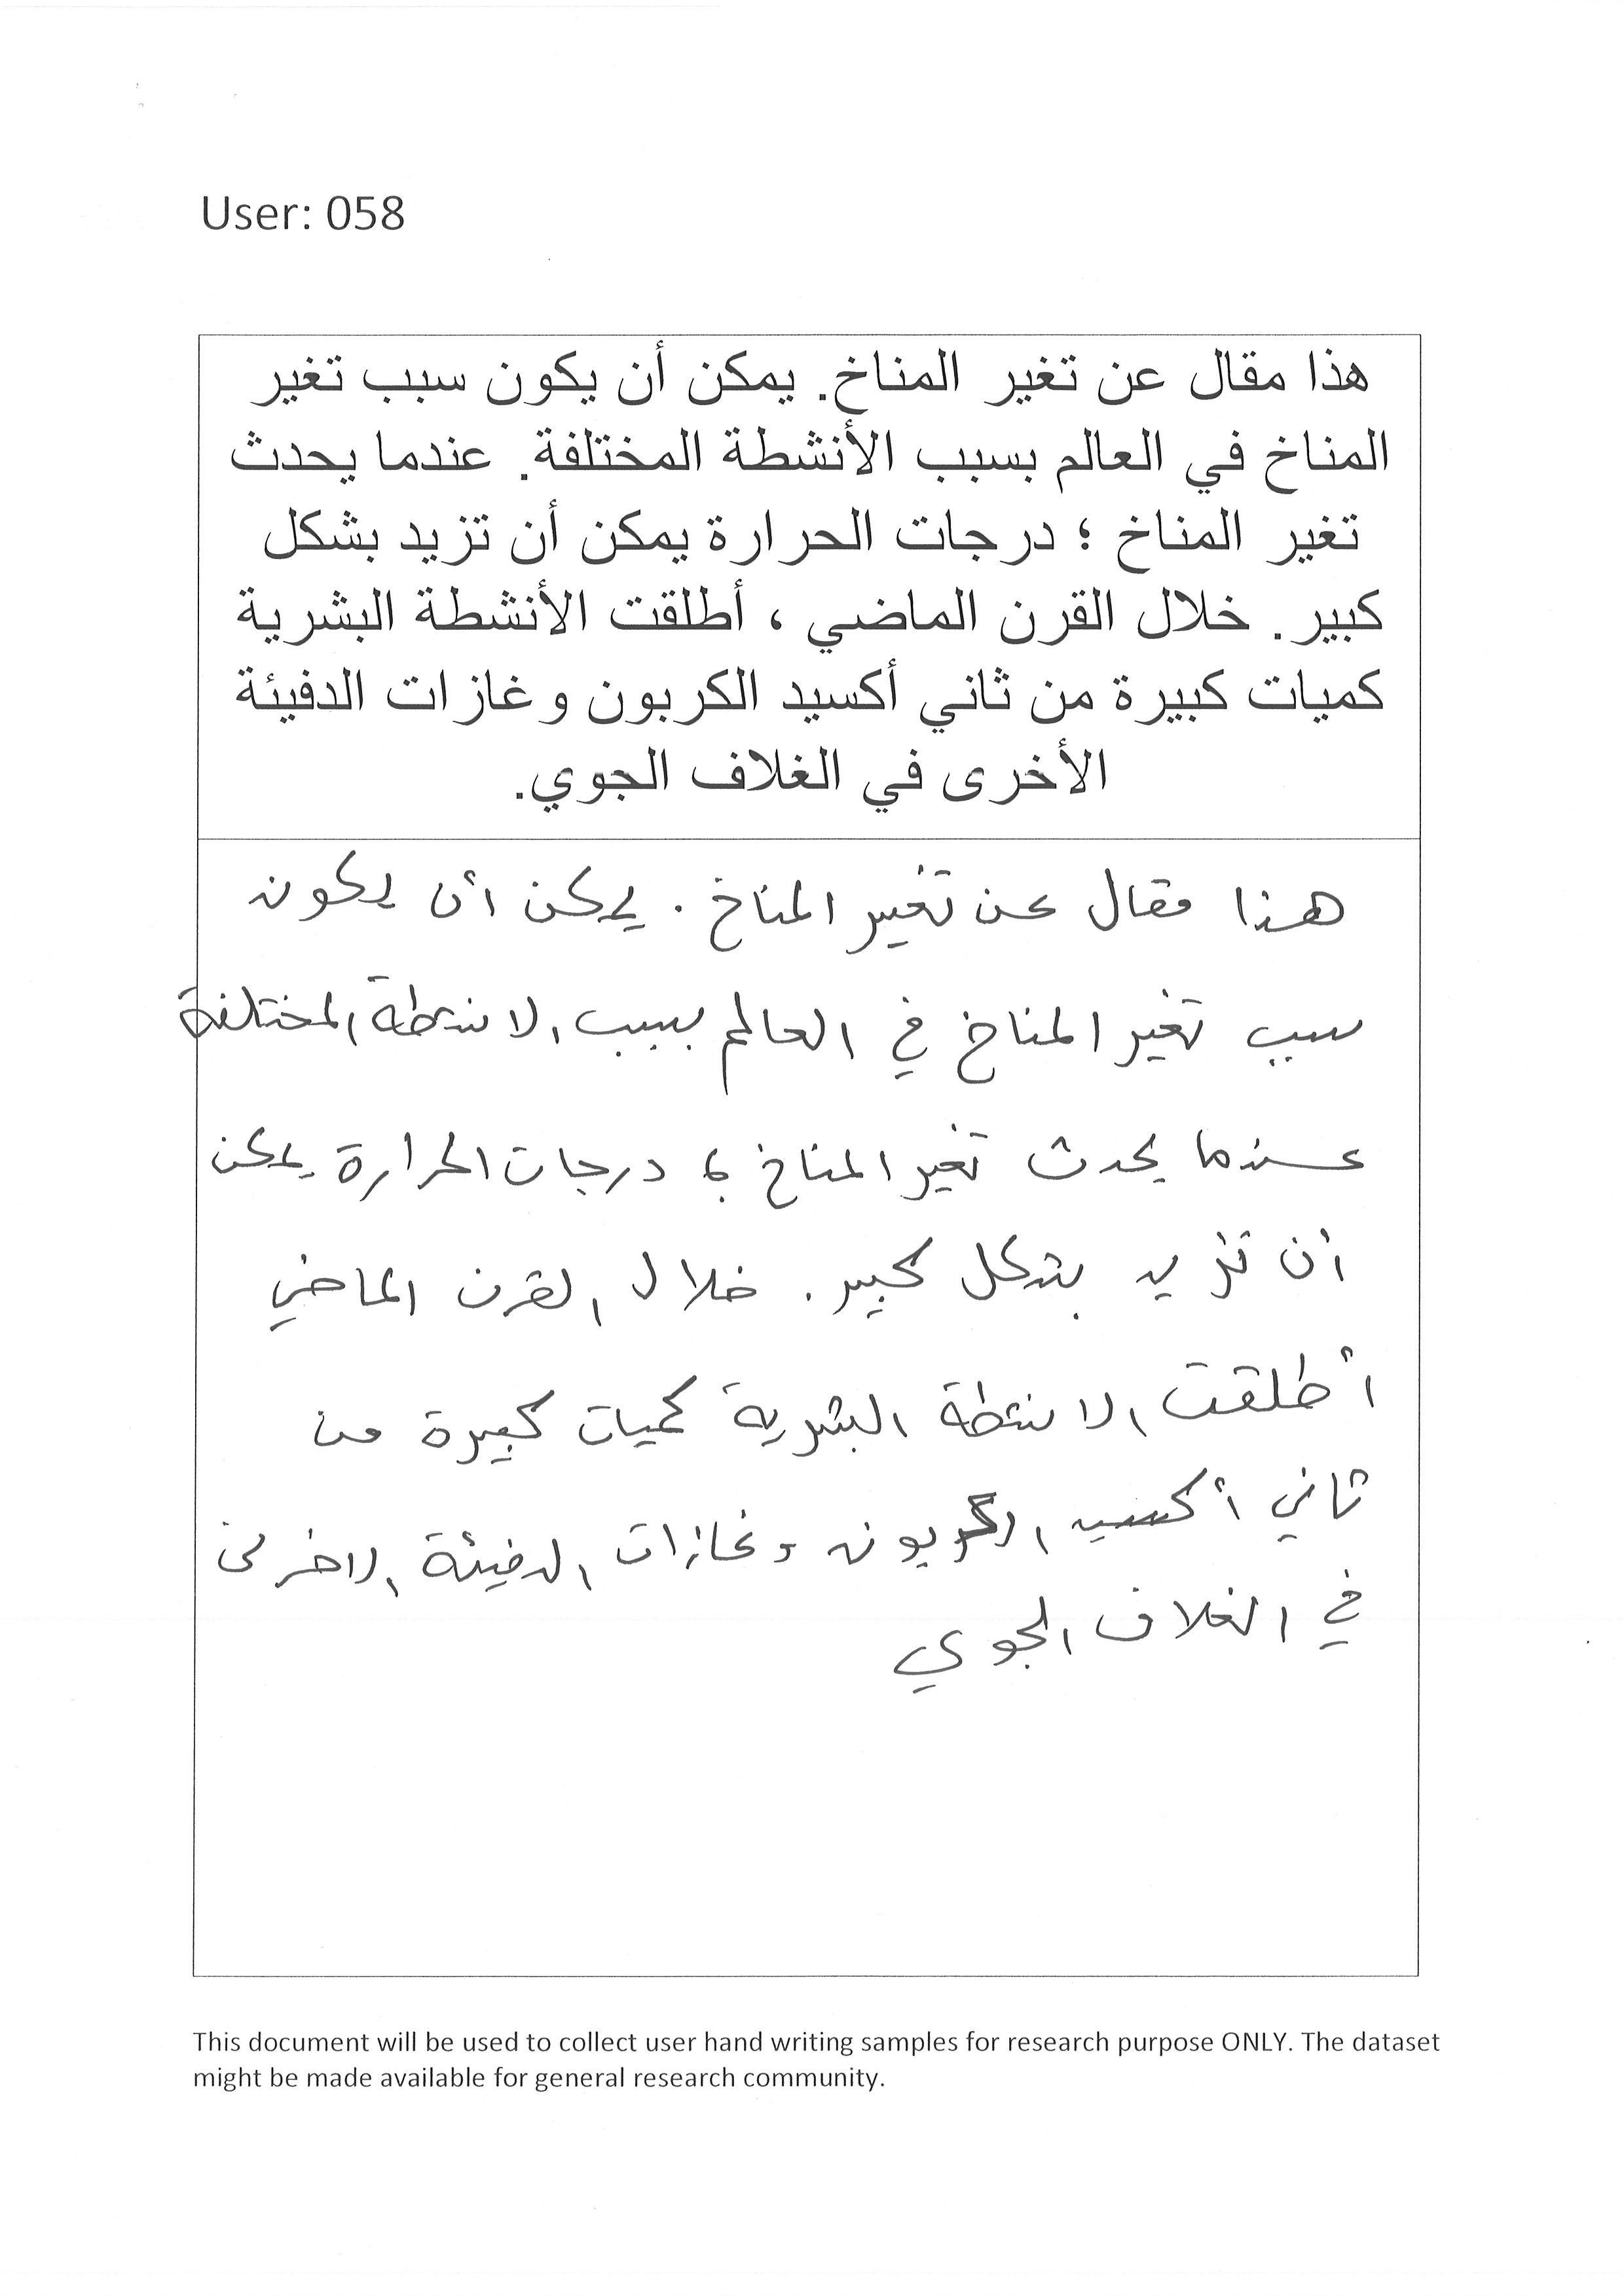 User: 058
هذا مقال عن تغير المناخ. يمكن أن يكون سبب تغير
المناخ في العالم بسبب الأنشطة المختلفة. عندما يحدث
تغير المناخ ؛ درجات الحرارة يمكن أن تزيد بشكل
كبير. خلال القرن الماضي ، أطلقت الأنشطة البشرية
كميات كبيرة من ثاني أكسيد الكربون وغازات الدفيئة
الأخرى في الغلاف الجوي.
هذا مقال عن تغير المناخ . يمكن أن يكون
سبب تغير المناخ في العالم بسبب الانشطة المختلفة
عندما يحدث تغير المناخ ؛ درجات الحرارة يمكن
أن تزيد بشكل كبير . خلال القرن الماضي
أطلقت الانشطة البشرية كميات كبيرة من
ثاني أكسيد الكربون وغازات الدفيئة الاخرى
في الغلاف الجوي
This document will be used to collect user hand writing samples for research purpose ONLY. The dataset
might be made available for general research community.